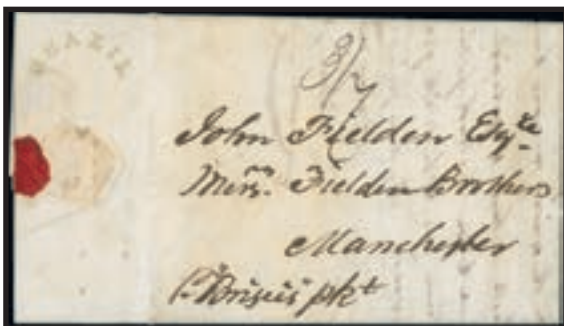 BRAZIL
3/7
John Fielden Esqre
Messrs. Fielden Brothers
Manchester
P. Briseis pkt